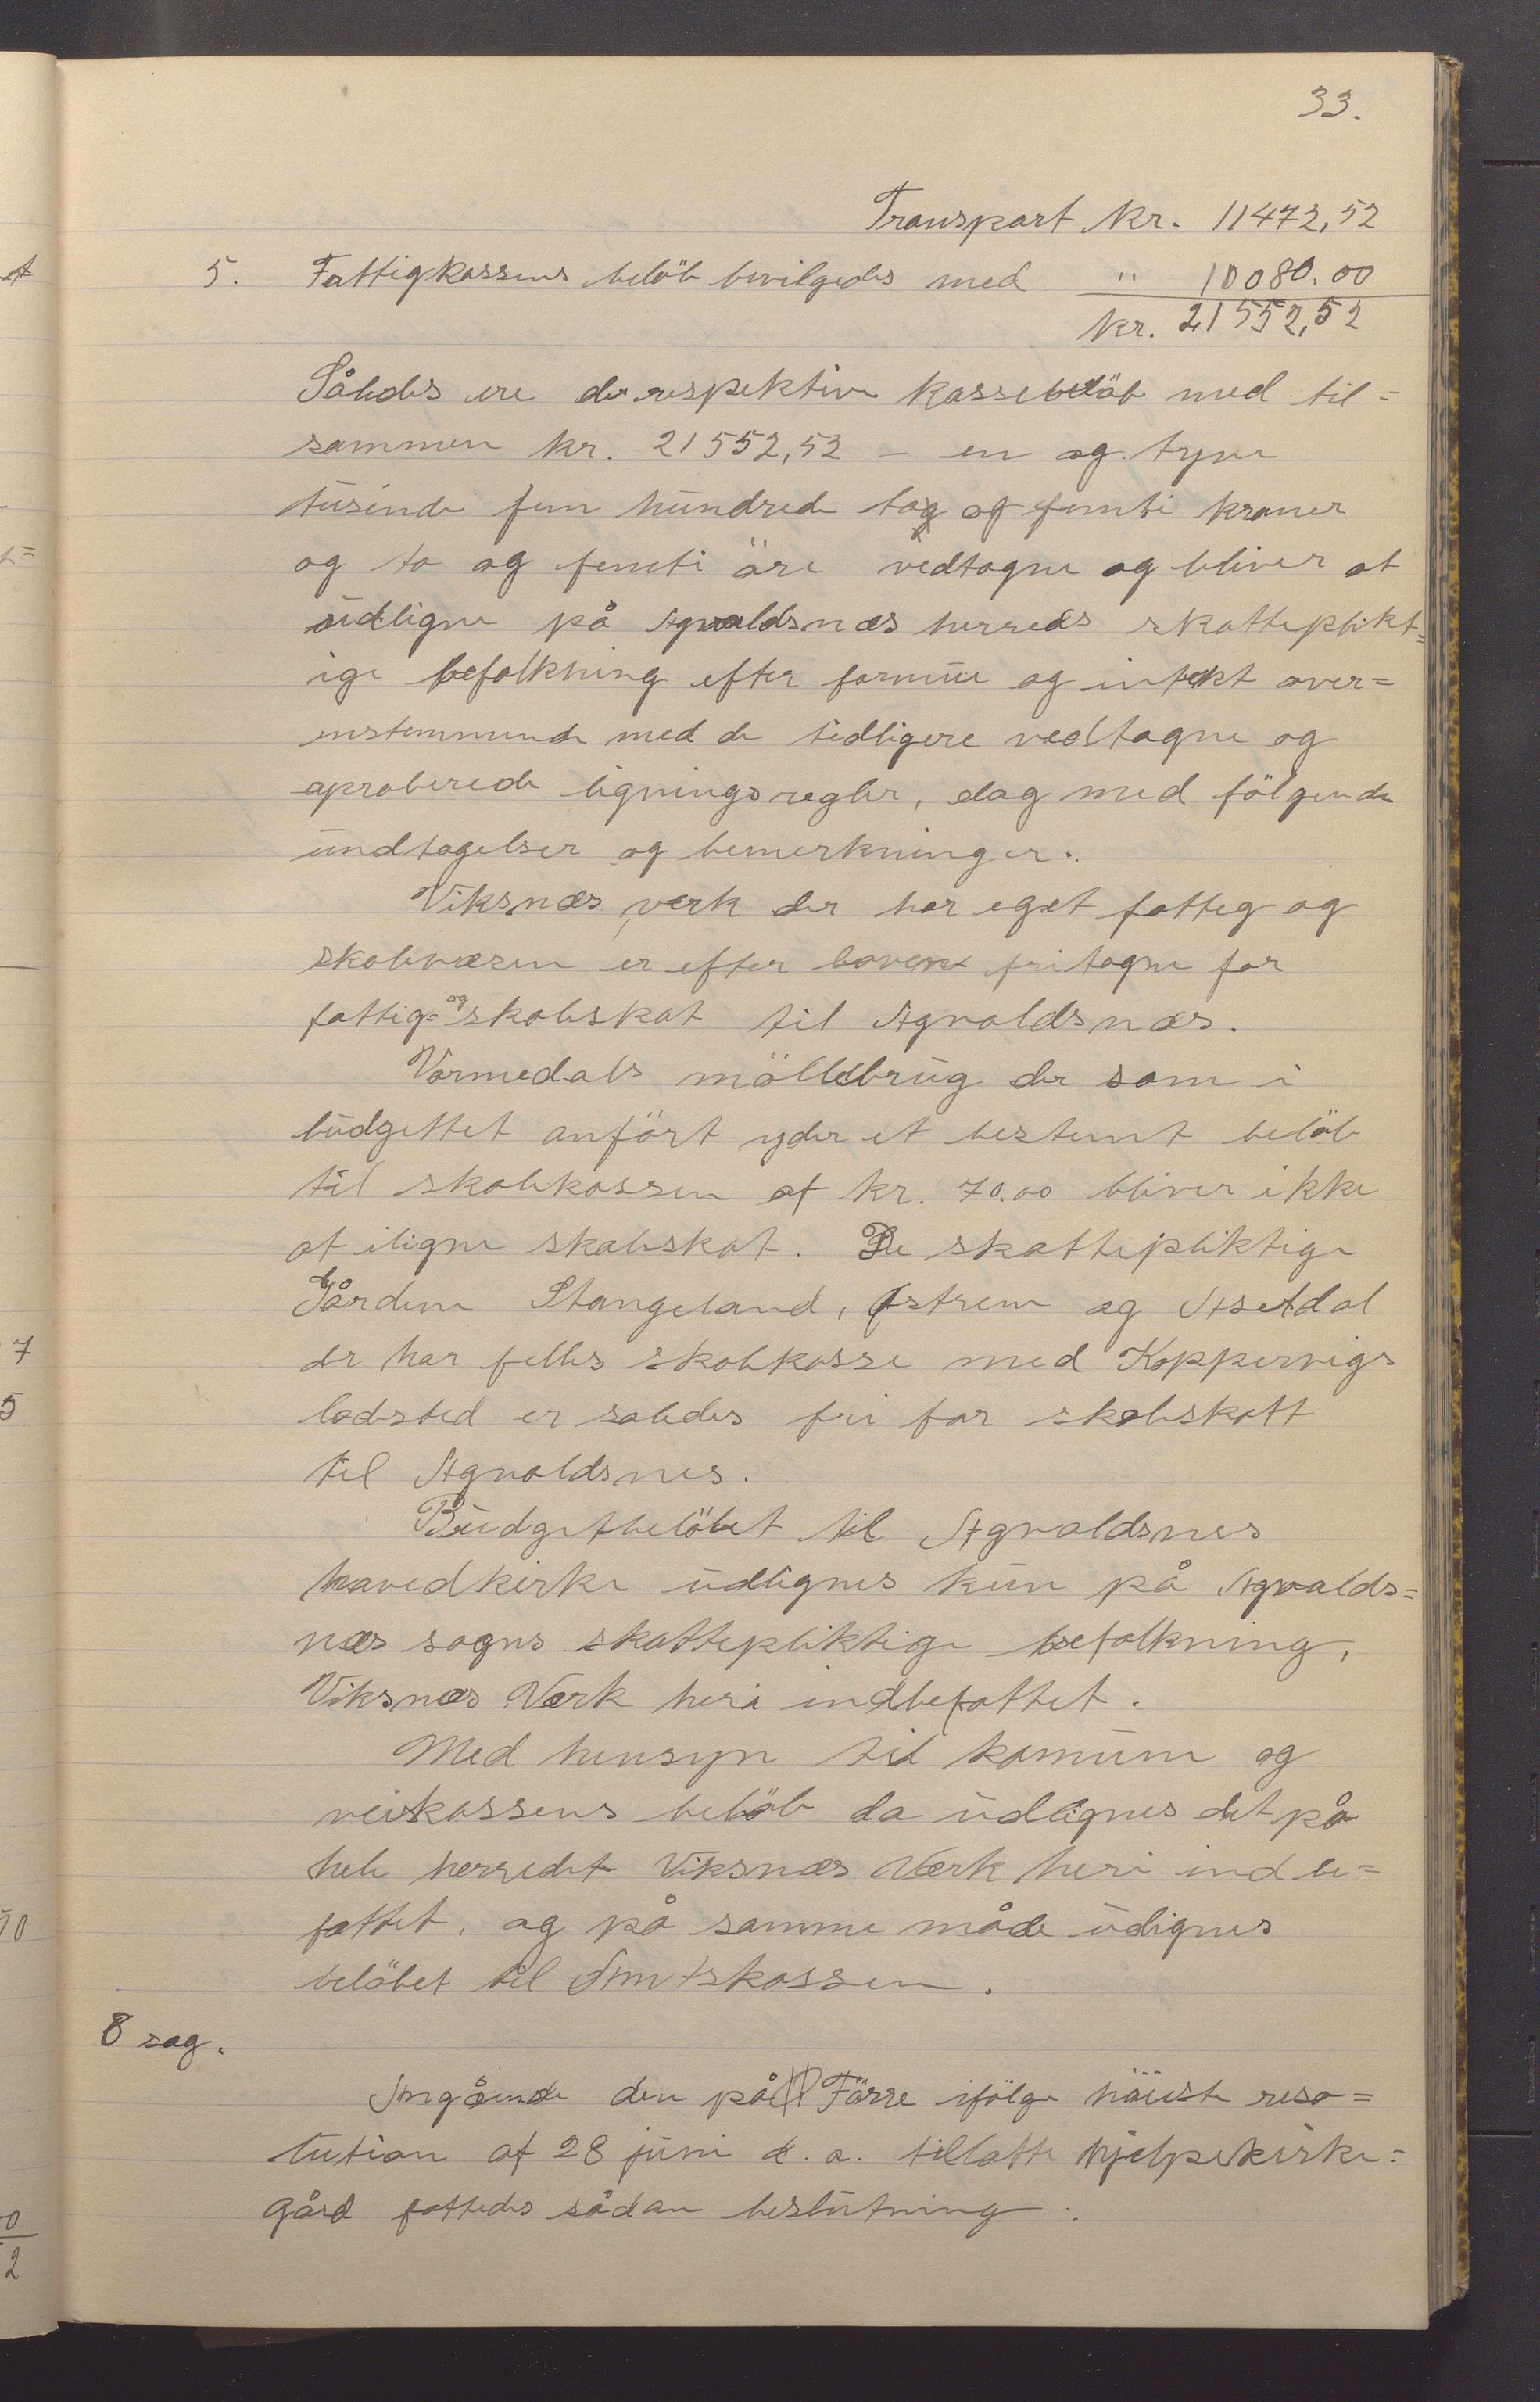 33.
Transport Kr. 11472,52
5. Fattigkassens belöb bevilgedes med " 10080.00
Kr. 21552,52
Således ere de respektive kassebelöb med til=
sammen kr. 21552,52 – en og tyve
tusinde fem hundrede to og femti kroner
og to og femti öre vedtagne og bliver at
udligne på Agvaldsnæs herreds skatteplikt=
ige befolkning efter formue og intekt over=
enstemmende med de tidligere vedtagne og
aproberede ligningsregler, dog med fölgende
undtagelser og bemerkninger.
Viksnæs verk der har eget fattig og
skolevæsen er efter loven fritagne for
fattig= og skoleskat til Agvaldsnæs.
Vormedals möllebrug der som i
budgettet anfört yder et bestemt belöb
til skolekassen af kr. 70.00 bliver ikke
at iligne skoleskat. De skattepliktige
Gårdene Stangeland, Østrem og Asetdal
der har felles skolekasse med Koppervigs
ladested er saledes fri for skoleskatt
til Agvaldsnes.
Budgetbelöbet til Agvaldsnes
hovedkirke udlignes kun på Agvalds=
næs sogns skattepliktige befolkning,
Viksnæs Værk heri indbefattet.
Med hensyn til komune og
veikassens belöb da udlignes det på
hele herredet Viksnæs Værk heri indbe=
fattet, og på samme måde udignes
belöbet til Amtskassen.
8 sag.
Angående den på Förre ifölge höieste reso=
lution af 28 juni d. a. tillatte hjelpekirke=
gård fattedes sådan beslutning:
7
5
0
2